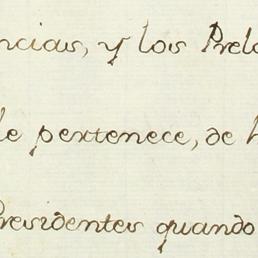 ncias, y los Prela
le pertenece, de l
Presidentes quando